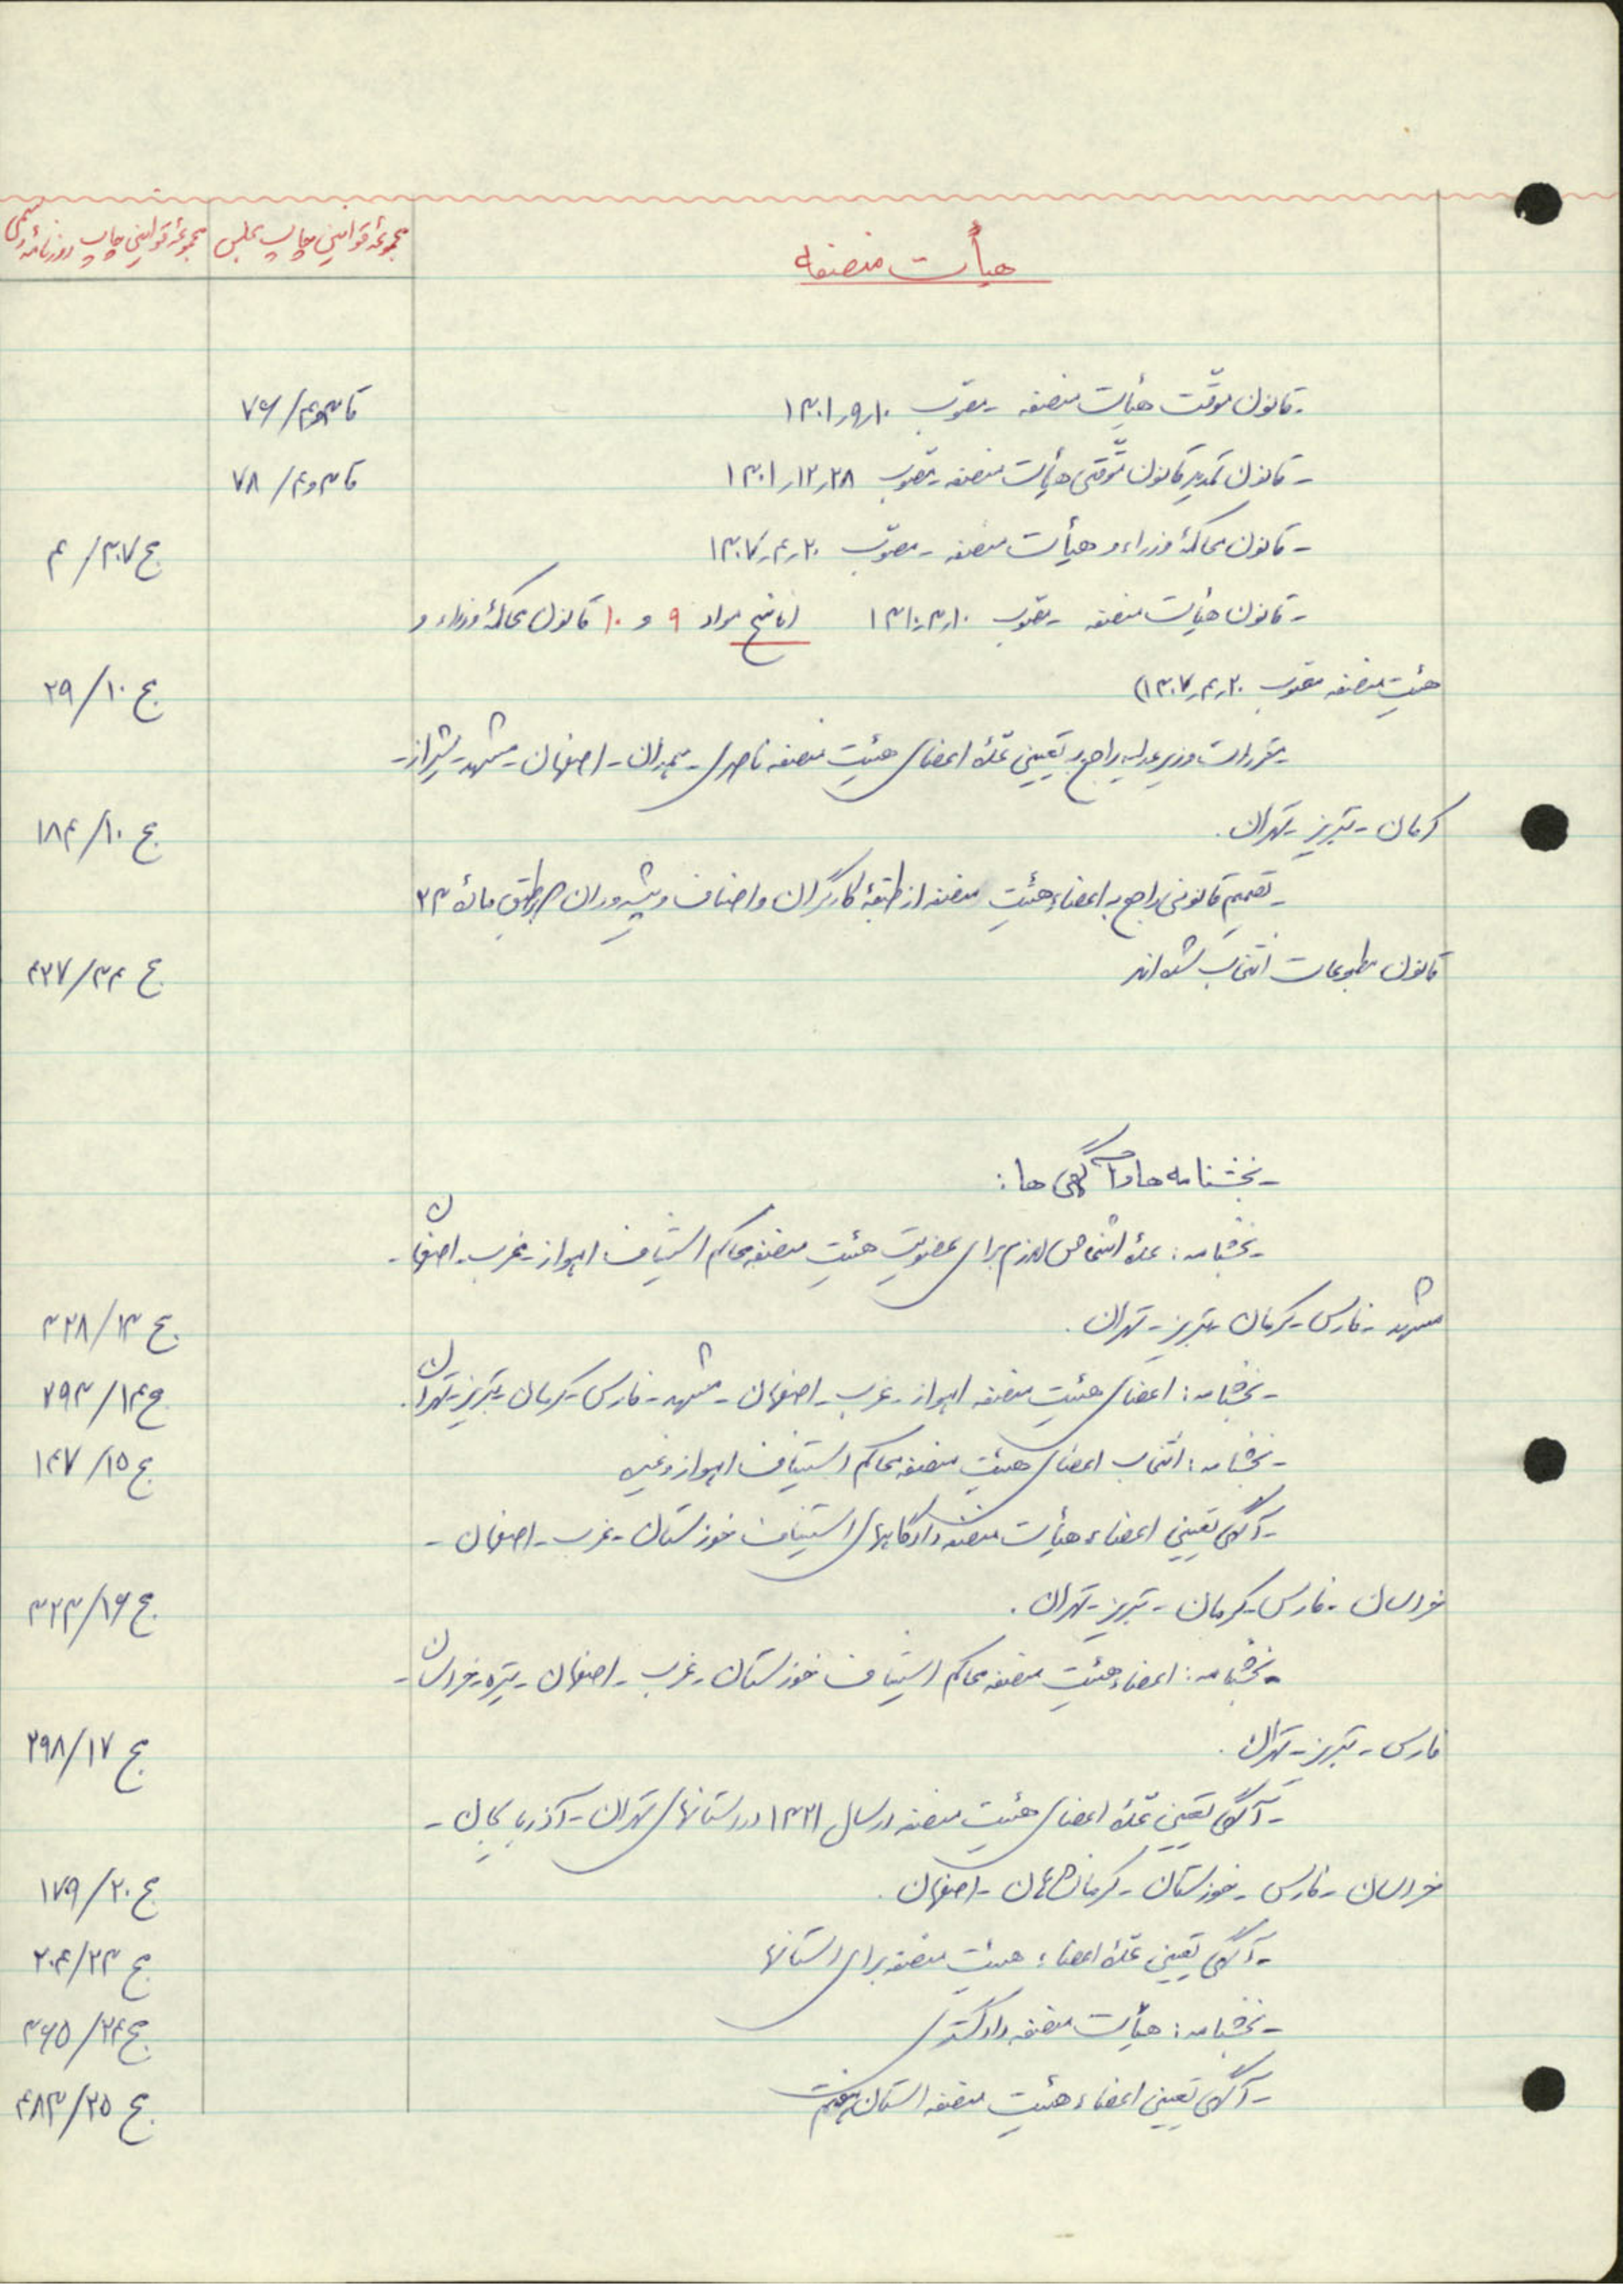 هیأت منصفه
مجموعهٔ قوانین چاپ مجلس
مجموعهٔ قوانین چاپ روزنامهٔ رسمی
- قانون موقّت هیأت منصفه - مصوب ۱۳۰۱٫۹٫۱۰ قا ۳و۴/ ۷۶
- قانون تمدید قانون موّقتی هیأت منصفه - مصوب ۱۳۰۱٫۱۲٫۲۸ قا ۳و۴/ ۷۸
- قانون محاکمهٔ وزراء و هیأت منصفه - مصوّب ۱۳۰۷٫۴٫۲۰ ج ۳۰۷/ ۴
- قانون هیأت منصفه - مصوب ۱۳۱۰٫۳٫۱۰ (ناسخ مواد ۹ و ۱۰ قانون محاکمهٔ وزراء و
هئیت منصفه مصوب ۱۳۰۷٫۴٫۲۰) ج ۱۰/ ۲۹
- مقررات وزیر عدلیه راجع به تعیین عّدهٔ اعضای هئیت منصفه ناصری - همدان - اصفهان - مشهد - شیراز -
کرمان - تبریز - تهران . ج ۱۰/ ۱۸۴
- تصمیم قانونی راجع به اعضاء هئیت منصفه از طبقهٔ کارگران و اصناف و پیشه وران که بر طبق مادهٔ ۳۴
قانون مطبوعات انتخاب شده اند ج ۳۴/ ۴۲۷
- بخشنامه ها و آگهی ها :
- بخشنامه : عدهٔ اشخاص لازم برای عضویت هئیت منصفه محاکم استیناف اهواز - غرب - اصفهان -
مشهد - فارس - کرمان - تبریز - تهران . ج ۱۳/ ۳۲۸
- بخشنامه : اعضای هئیت منصفه اهواز - غرب - اصفهان - مشهد - فارس - کرمان - تبریز - تهران . ج ۱۴/ ۲۹۳
- بخشنامه : انتخاب اعضای هیئت منصفه محاکم استیناف اهواز و غیره ج ۱۵/ ۱۴۷
- آگهی تعیین اعضاء هیأت منصفه دادگاههای استیناف خوزستان - غرب - اصفهان -
خراسان - فارس - کرمان - تبریز - تهران . ج ۱۶/ ۳۲۳
- بخشنامه : اعضاء هئیت منصفه محاکم استیناف خوزستان - غرب - اصفهان - خراسان -
فارس - تبریز - تهران . ج ۱۷/ ۲۹۸
- آگهی تعیین عّدهٔ اعضای هئیت منصفه در سال ۱۳۲۱ در استانهای تهران - آذربایجان -
خراسان - فارس - خوزستان - کرمانشاهان - اصفهان . ج ۲۰/ ۱۷۹
- آگهی تعیین عّدهٔ اعضاء هیئت منصفه برای استانها ج ۲۳/ ۲۰۴
- بخشنامه : هیأت منصفه دادگستری ج ۲۴/ ۳۶۵
- آگهی تعیین اعضاء هئیت منصفه استان هفتم ج ۲۵/ ۴۸۳